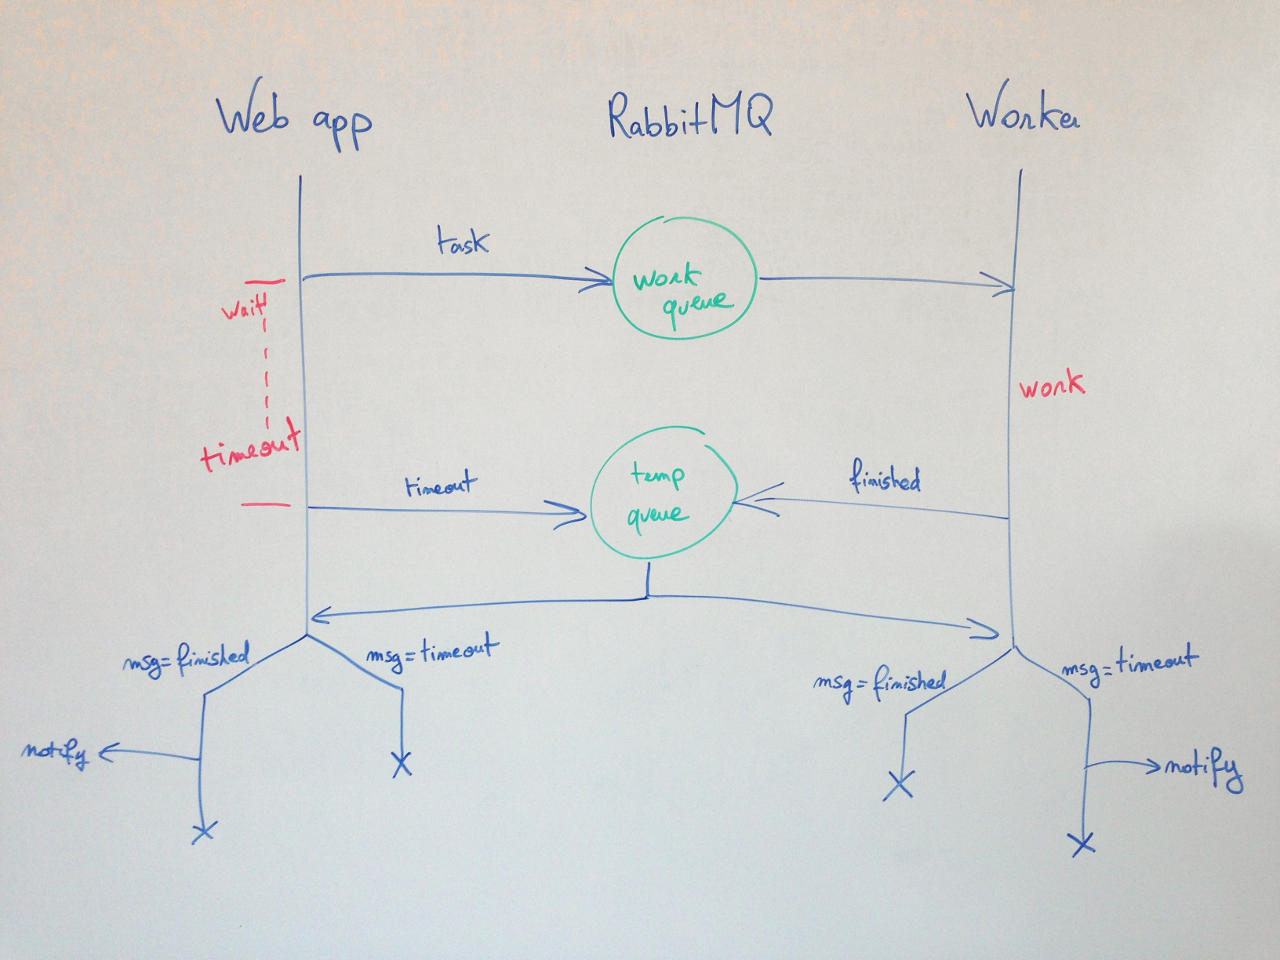 Web app
RabbitMQ
Worker
task
work
queue
wait
work
timeout
timeout
temp
queue
finished
msg=finished
msg=timeout
msg=finished
msg=timeout
notify
notify